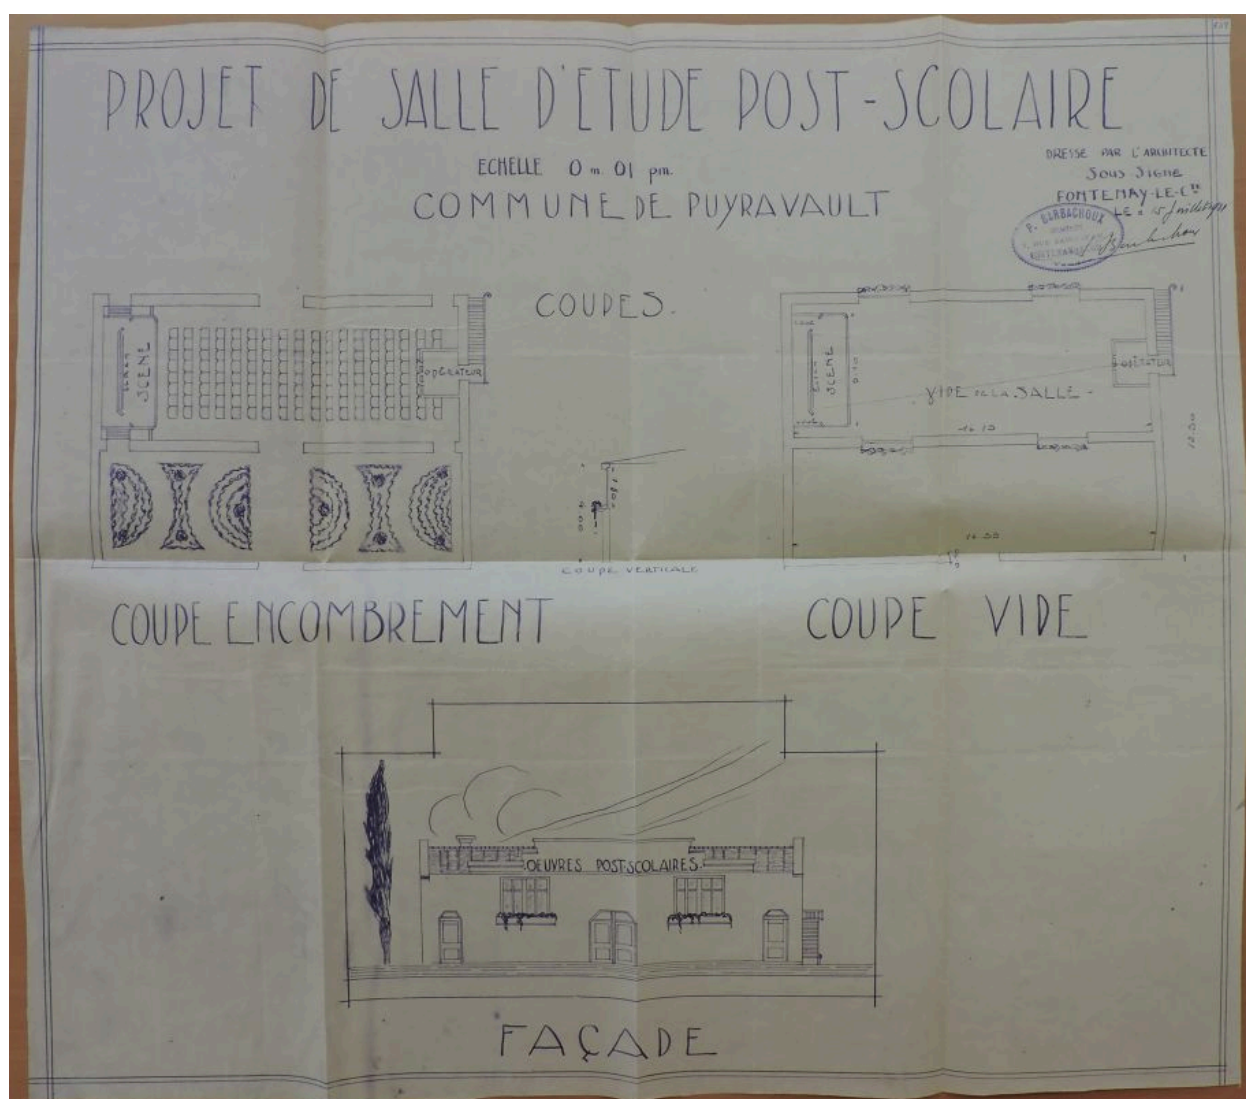 PROJET DE SALLE D'ETUDE POST-SCOLAIRE
ECHELLE 0 m. 01 pm.
COMMUNE DE PUYRAVAULT
DRESSE PAR L'ARCHITECTE
SOUS SIGNE
FONTENAY-LE-Cte
LE : 15 Juillet
P. BARBACHOUX
COUPES.
SCENE
OPERATEUR
ECRAN
SCENE
OPERATEUR
VIDE DE LA SALLE -
COUPE VERTICALE
COUPE ENCOMBREMENT
COUPE VIDE
OEUVRES POST-SCOLAIRES.
FAÇADE